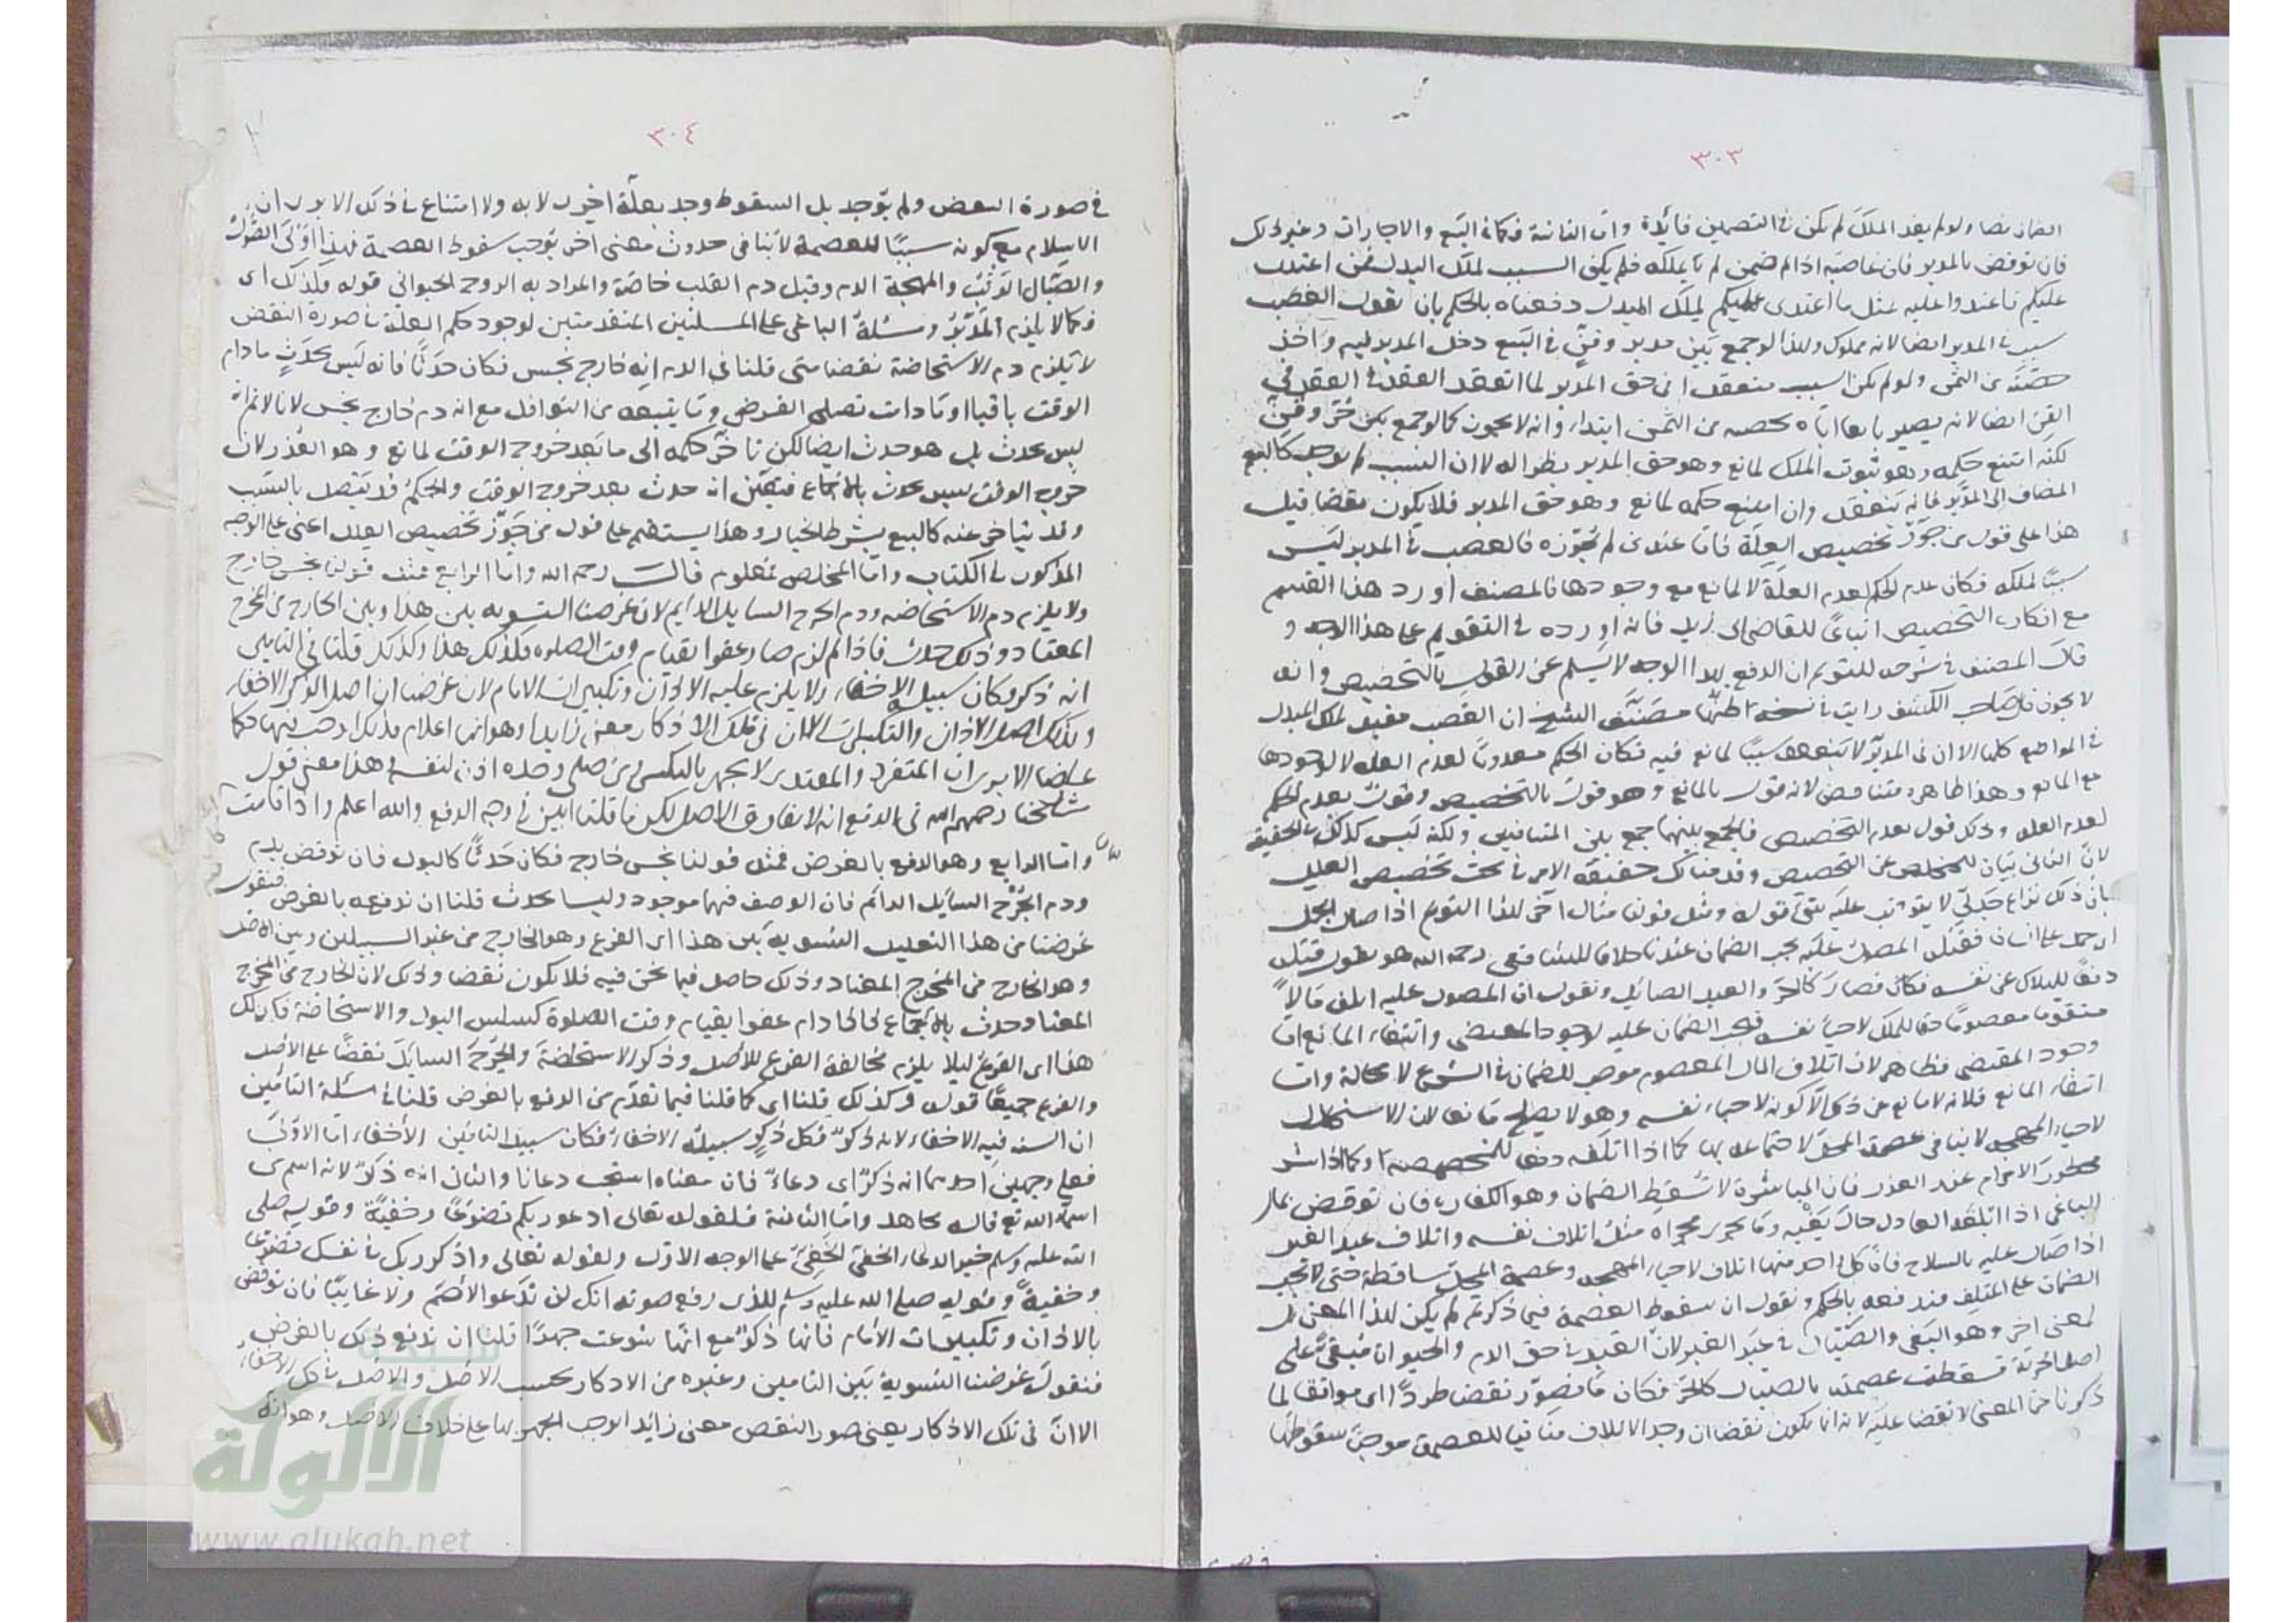 ٣٠٣
الضمان نصا ولو لم يفد الملك لم يكن في التضمين فائدة واما الثانية فكما في البيع والاجارات وغير ذلك
فان نوقض بالمدبر فان غاصبه اذا لم يضمن لم يملكه فلم يكن السبب لملك البدل فمن اعتدى
عليكم فاعتدوا عليه بمثل ما اعتدى عليكم لملك المبدل دفعناه بالحكم بان نقول الغصب
سبب في المدبر ايضا لانه مملوك ولهذا لو جمع بين مدبر وقن في البيع دخل المدبر فيه واخذ
حصته من الثمن ولو لم يكن السبب منعقدا في حق المدبر لما انعقد العقد في
القن ايضا لانه يصير بايعا اياه بحصته من الثمن ابتداء وانه لا يجوز كما لو جمع بين حر وقن
لكنه امتنع حكمه وهو ثبوت الملك لمانع وهو حق المدبر نظرا له لا ان السبب لم يوجد كالبيع
المضاف الى المدبر فانه ينعقد وان امتنع حكمه لمانع وهو حق المدبر فلا يكون نقضا قيل
هذا على قول من جوز تخصيص العلة فاما عند من لم يجوزه فالغصب في المدبر ليس
سببا لملكه فكان عدم الحكم لعدم العلة لا لمانع مع وجودها فالمصنف اورد هذا القسم
مع انكاره التخصيص اتباعا للقاضي ابي زيد فانه اورده في التقويم على هذا الوجه و
قال المصنف في شرحه للتقويم ان الدفع بهذا الوجه لا يسلم عن القول بالتخصيص وانه
لا يجوز قال صاحب الكشف رايت في نسخة اظنها مصنف الشيخ ان الغصب مفيد لملك المبدل
في المواضع كلها الا ان في المدبر لا ينعقد سببا لمانع فيه فكان الحكم معدوما لعدم العلة لا لوجودها
مع المانع وهذا ظاهره متناقض لانه قول بالمانع وهو قول بالتخصيص وقول بعدم الحكم
لعدم العلة وذلك قول بعدم التخصيص فالجمع بينهما جمع بين المتنافيين ولكنه ليس كذلك في الحقيقة
لان الثاني بيان للمخلص عن التخصيص وقد مناك حقيقة الامر في بحث تخصيص العلل
بان ذلك نزاع جدلي لا يترتب عليه شيء قوله ومثل قولنا مثال اخر لهذا النوع اذا صال الجمل
الرجل على انسان فقتل المصول عليه يجب الضمان عندنا خلافا للشافعي رحمه الله هو يقول قتله
دفعا للهلاك عن نفسه فكان فصار كالحر والعبد الصائل ونقول ان المصول عليه اتلف مالا
متقوما معصوما حقا للملك لاحياء نفسه فيجب الضمان عليه لوجود المقتضي وانتفاء المانع اما
وجود المقتضي فظاهر لان اتلاف المال المعصوم موجب للضمان في الشرع لا محالة واما
انتفاء المانع فلانه لا مانع عن ذلك الا كونه لاحياء نفسه وهو لا يصلح مانعا لان الاستحلال
لاحياء المهجة لا ينافي عصمة المحل لاجتماعه بها كما اذا اتلفه دفعا للمخمصة او كما اذا باشر
محظور الاحرام عند العذر فان المباشرة لا تسقط الضمان وهو الكفارة فان نوقض بمال
الباغي اذا اتلفه العادل حال بغيه وما يجري مجراه مثل اتلاف نفسه واتلاف عبد الغير
اذا صال عليه بالسلاح فان كل واحد منهما اتلاف لاحياء المهجة وعصمة المحل ساقطة حتى لا تجب
الضمان على المتلف فندفعه بالحكم ونقول ان سقوط العصمة فيما ذكرتم لم يكن لهذا المعنى بل
لمعنى اخر وهو البغي والصيال في عبد الغير لان العبد في حق الدم والحيوة مبقى على
اصل الحرية فسقطت عصمته بالصيال كالحر فكان ما تصور نقضا طردا اي موافقا لما
ذكرنا من المعنى لا نقضا عليه لانه انما يكون نقضا ان وجد الاتلاف منافيا للعصمة موجبا سقوطها
٣٠٤
في صورة البعض ولم يوجد بل السقوط وجد بعلة اخرى لا به ولا امتناع في ذلك الا يرى ان
الاسلام مع كونه سببا للعصمة لا ينافي حدوث معنى اخر يوجب سقوط العصمة فهذا اولى الصول
والصيال الوثب والمهجة الدم وقيل دم القلب خاصة والمراد به الروح الحيواني قوله وكذلك اي
فكما لا يلزم المدبر ومسئلة الباغي على المسئلتين المتقدمتين لوجود حكم العلة في صورة النقض
لا يلزم دم الاستحاضة نقضا متى قلنا في الدم انه خارج نجس فكان حدثا فانه ليس بحدث ما دام
الوقت باقيا او مادامت تصلي الفرض وما يتبعه من النوافل مع انه دم خارج نجس لانا لا نم انه
ليس بحدث بل هو حدث ايضا لكن تاخر حكمه الى ما بعد خروج الوقت لمانع وهو العذر لان
خروج الوقت ليس بحدث بالاجماع فتعين انه حدث بعد خروج الوقت والحكم قد يتصل بالسبب
وقد يتاخر عنه كالبيع بشرط الخيار وهذا يستقيم على قول من جوز تخصيص العلل اعني على الوجه
المذكور في الكتاب واما المخلص فمعلوم قال رحمه الله واما الرابع فمثل قولنا نجس خارج
ولا يلزم دم الاستحاضة ودم الجرح السايل الدايم لان غرضنا التسوية بين هذا وبين الخارج من المخرج
المعتاد وذلك حدث فاذا لزم صار عفوا لقيام وقت الصلوة فكذلك هذا وكذلك قلنا في التامين
انه ذكر فكان سبيله الاخفاء ولا يلزم عليه الاذان وتكبيرات الامام لان غرضنا ان اصل الذكر الاخفاء
وكذلك اصل الاذان والتكبيرات الا ان في تلك الاذكار معنى زايدا وهو انها اعلام فلذلك اوجب فيها حكما
عارضا الا يرى ان المنفرد والمقتدي لا يجهر بالتكبير ومن صلى وحده اذن لنفسه هذا معنى قول
مشايخنا رحمهم الله في الدفع انه لا يفارق الاصل لكن ما قلنا ابين في وجه الدفع والله اعلم واذا قامت
واما الرابع وهو الدفع بالغرض فمثل قولنا نجس خارج فكان حدثا كالبول فان نوقض بدم
ودم الجرح السايل الدائم فان الوصف فيهما موجود وليسا بحدث قلنا ان ندفعه بالغرض فنقول
غرضنا من هذا التعليل التسوية بين هذا اي الفرع وهو الخارج من غير السبيلين وبين الاصل
وهو الخارج من المخرج المعتاد وذلك حاصل فيما نحن فيه فلا يكون نقضا وذلك لان الخارج من المخرج
المعتاد حدث بالاجماع فاذا دام عفوا لقيام وقت الصلوة كسلس البول والاستحاضة فكذلك
هذا اي الفرع ليلا يلزم مخالفة الفرع للاصل وذكر الاستحاضة والجرح السايل نقضا على الاصل
والفرع جميعا قوله وكذلك قلنا اي كما قلنا فيما تقدم من الدفع بالغرض قلنا في مسئلة التامين
ان السنة فيه الاخفاء لانه ذكر فكل ذكر سبيله الاخفاء فكان سبيل التامين الاخفاء اما الاولى
فعلى وجهين احدهما انه ذكر اي دعاء فان معناه استجب دعانا والثاني انه ذكر لانه اسم من
اسماء الله تع قاله مجاهد واما الثانية فلقوله تعالى ادعوا ربكم تضرعا وخفية وقوله صلى
الله عليه وسلم خير الدعاء الخفي على الوجه الاول ولقوله تعالى واذكر ربك في نفسك تضرعا
وخفية وقوله صلى الله عليه وسلم للذي رفع صوته انك لن تدعو الاصم ولا غايبا فان نوقض
بالاذان وتكبيرات الامام فانها ذكر مع انها شرعت جهرا قلنا ان ندفع ذلك بالغرض
فنقول غرضنا التسوية بين التامين وغيره من الاذكار بحسب الاصل والاصل في كل الاخفاء
الا ان في تلك الاذكار يعني صور النقض معنى زايد اوجب الجهر بها على خلاف الاصل وهو انه
شبكة
الألوكة
www.alukah.net